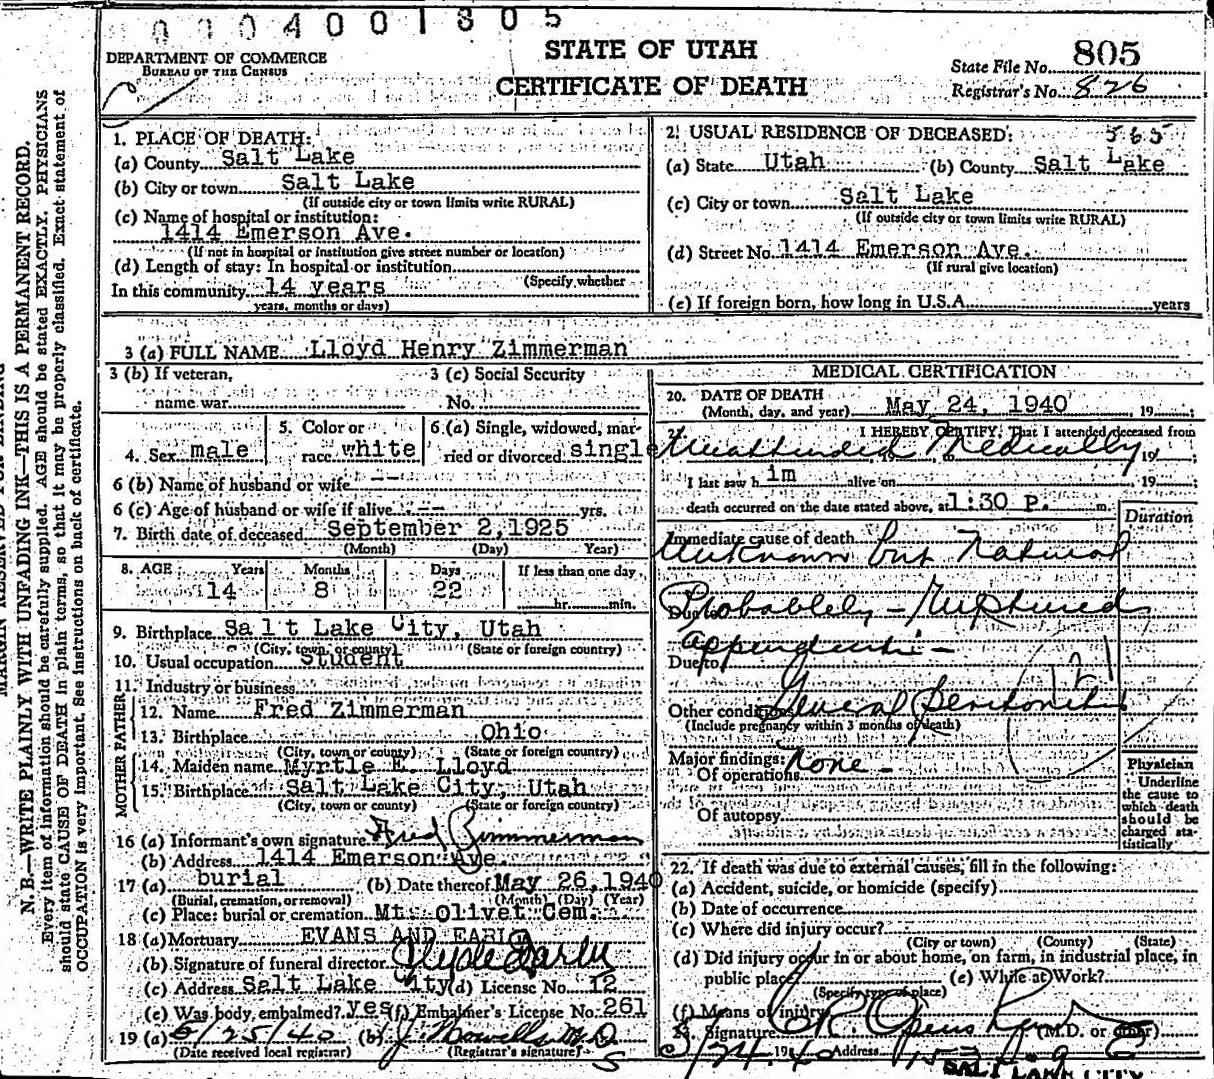 0 1 0 4 0 0 1 8 0 5
STATE OF UTAH
CERTIFICATE OF DEATH
DEPARTMENT OF COMMERCE
BUREAU OF THE CENSUS
State File No. 805
Registrar's No. 826
MARGIN RESERVED FOR BINDING
N. B.—WRITE PLAINLY WITH UNFADING INK—THIS IS A PERMANENT RECORD.
Every item of information should be carefully supplied. AGE should be stated EXACTLY. PHYSICIANS
should state CAUSE OF DEATH in plain terms, so that it may be properly classified. Exact statement of
OCCUPATION is very important. See instructions on back of certificate.
1. PLACE OF DEATH:
(a) County Salt Lake
(b) City or town Salt Lake
(If outside city or town limits write RURAL)
(c) Name of hospital or institution:
1414 Emerson Ave.
(If not in hospital or institution give street number or location)
(d) Length of stay: In hospital or institution
(Specify whether
In this community 14 years
years, months or days)
2. USUAL RESIDENCE OF DECEASED: 565
(a) State Utah (b) County Salt Lake
(c) City or town Salt Lake
(If outside city or town limits write RURAL)
(d) Street No. 1414 Emerson Ave.
(If rural give location)
(e) If foreign born, how long in U.S.A. years
3 (a) FULL NAME Lloyd Henry Zimmerman
3 (b) If veteran, 3 (c) Social Security
name war No.
4. Sex male 5. Color or race white 6.(a) Single, widowed, married or divorced single
6 (b) Name of husband or wife ---
6 (c) Age of husband or wife if alive --- yrs.
7. Birth date of deceased September 2, 1925
(Month) (Day) Year)
8. AGE Years Months Days If less than one day
14 8 22 hr. min.
9. Birthplace Salt Lake City, Utah
(City, town, or county) (State or foreign country)
10. Usual occupation Student
11. Industry or business
FATHER
12. Name Fred Zimmerman
13. Birthplace Ohio
(City, town or county) (State or foreign country)
MOTHER
14. Maiden name Myrtle E. Lloyd
15. Birthplace Salt Lake City, Utah
(City, town or county) (State or foreign country)
16 (a) Informant's own signature Fred Zimmerman
(b) Address 1414 Emerson Ave
17 (a) burial (b) Date thereof May 26, 1940
(Burial, cremation, or removal) (Month) (Day) (Year)
(c) Place: burial or cremation Mt. Olivet Cem.
18 (a) Mortuary EVANS AND EARLY
(b) Signature of funeral director Clyde Early
(c) Address Salt Lake City (d) License No. 12
(e) Was body embalmed? Yes (f) Embalmer's License No. 261
19 (a) 5/25/40 (b) J. Howells M.D.
(Date received local registrar) (Registrar's signature)
S
MEDICAL CERTIFICATION
20. DATE OF DEATH
(Month, day, and year) May 24, 1940, 19
I HEREBY CERTIFY, That I attended deceased from
Unattended Medically 19
I last saw him alive on 19
death occurred on the date stated above, at 1:30 P. m.
Duration
Immediate cause of death
Unknown but Natural
Due to Probablely - Ruptured
Appendicitis -
Due to
Other conditions General Peritonitis
(Include pregnancy within 3 months of death)
121
Major findings: None -
Of operations
Of autopsy
Physician
Underline
the cause to
which death
should be
charged sta-
tistically
22. If death was due to external causes, fill in the following:
(a) Accident, suicide, or homicide (specify)
(b) Date of occurrence
(c) Where did injury occur?
(City or town) (County) (State)
(d) Did injury occur in or about home, on farm, in industrial place, in
public place (e) While at Work?
(Specify type of place)
(f) Means of injury
Signature (M.D. or other)
5/24 1940 Address
SALT LAKE CITY